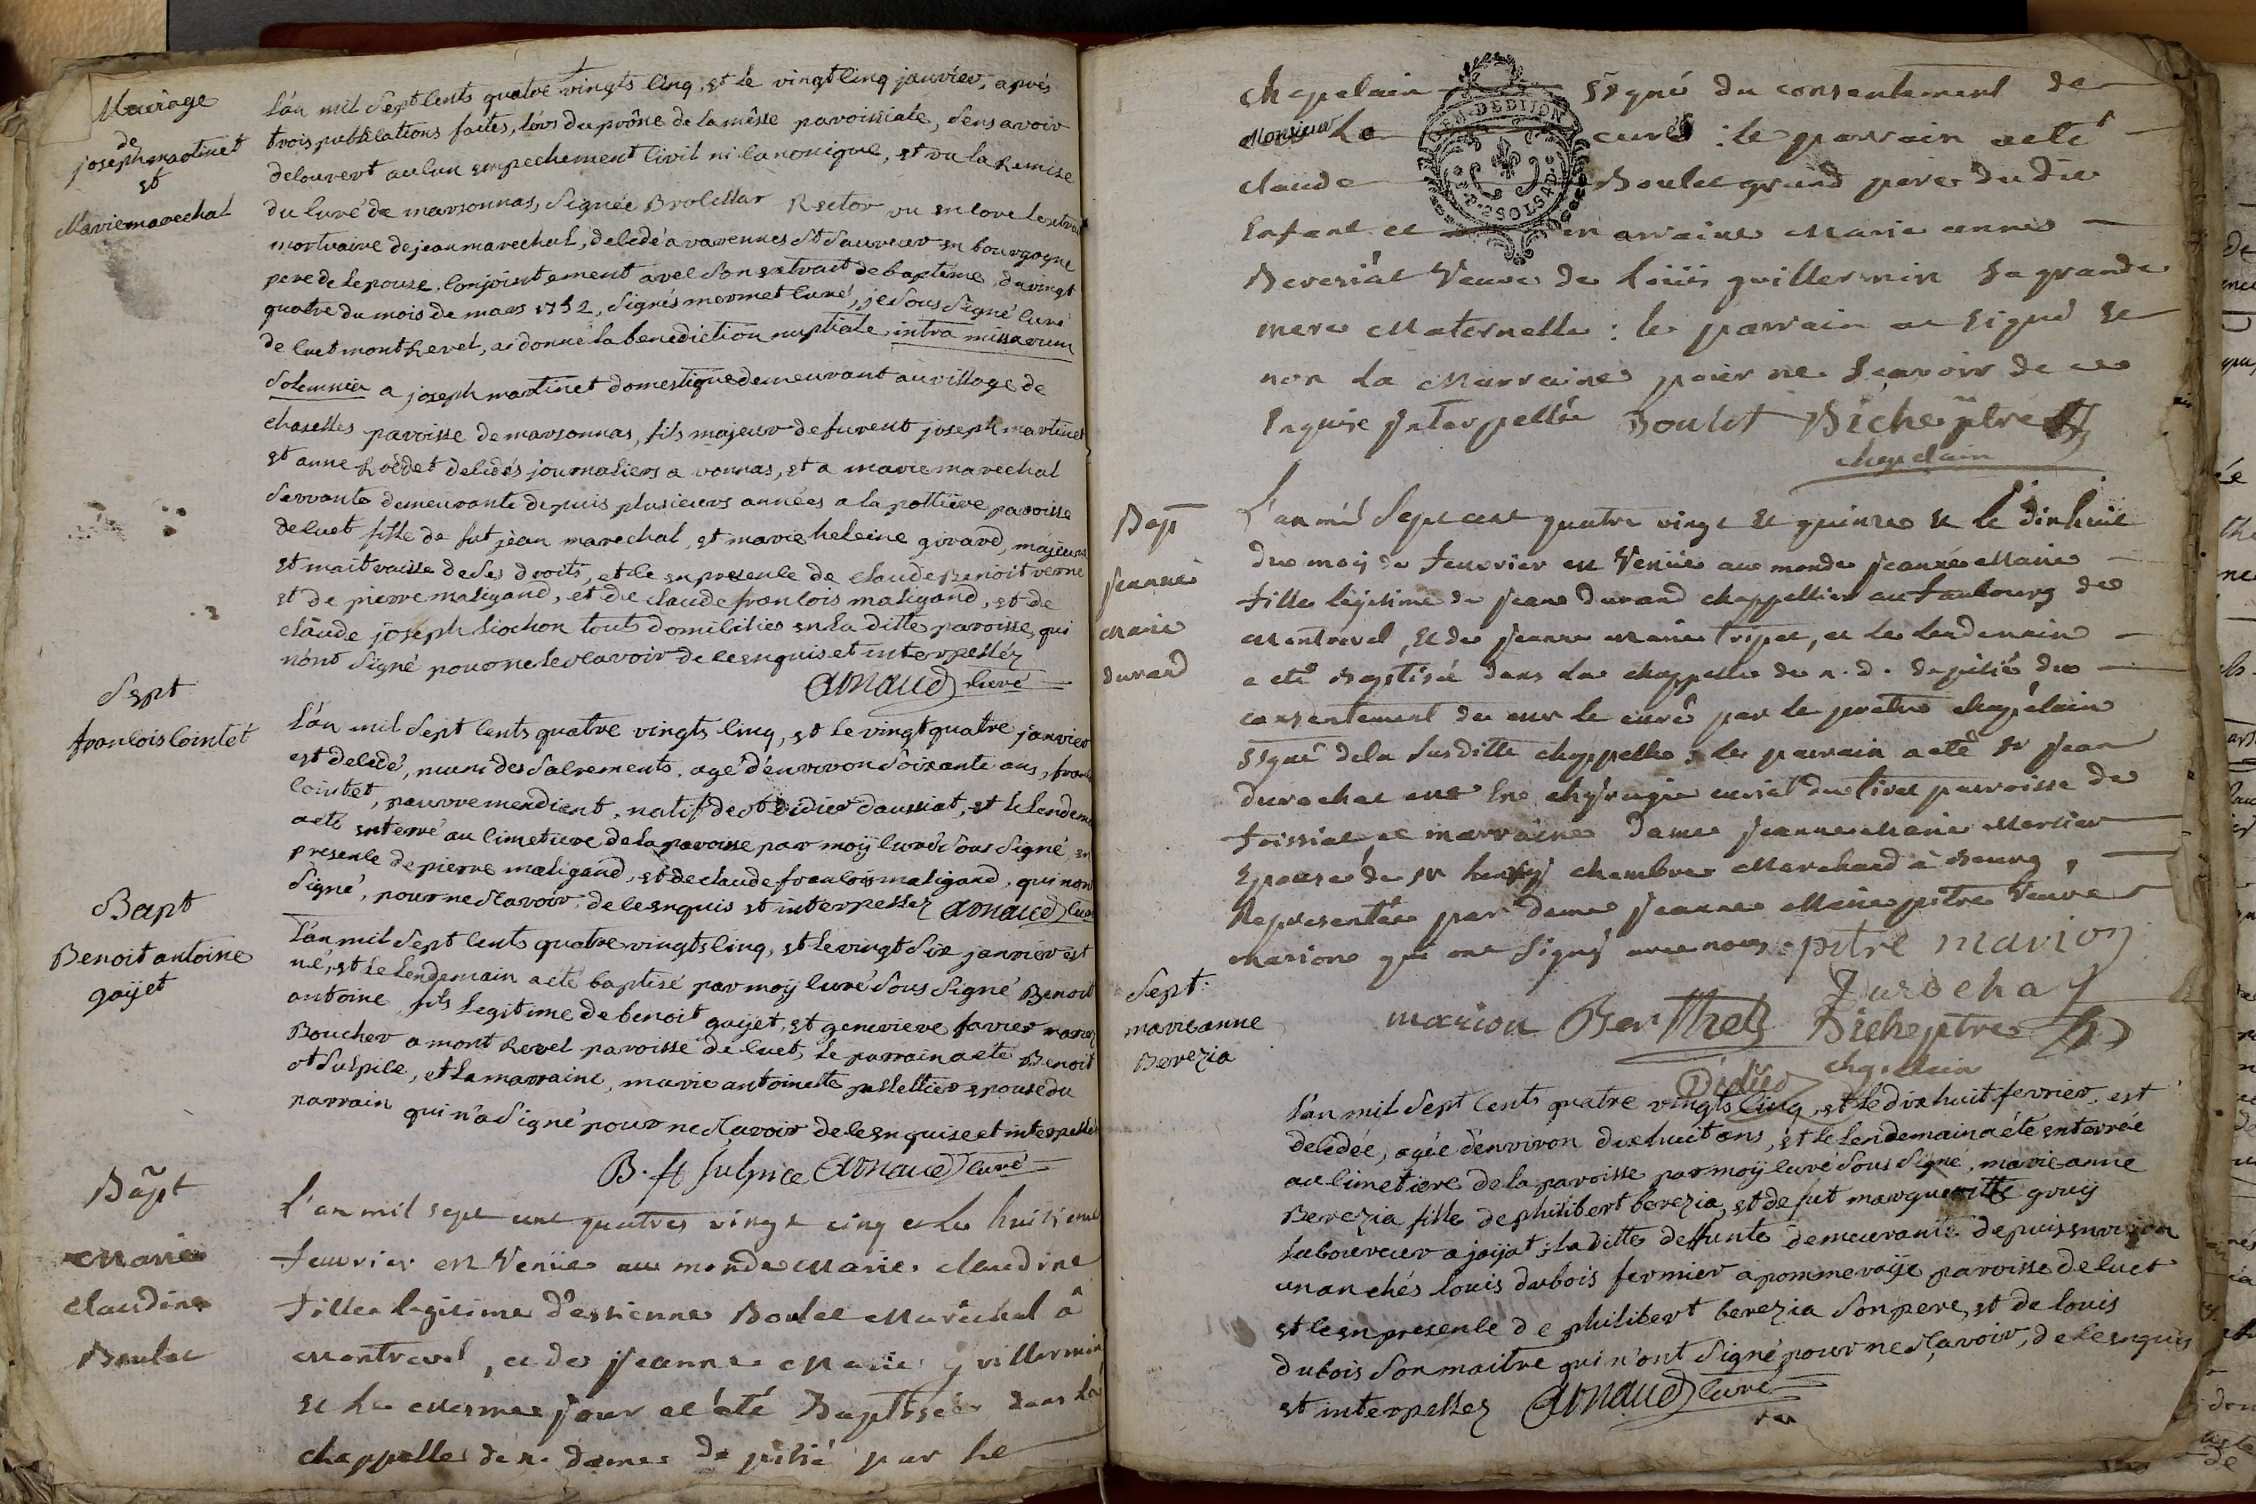 Mariage
de
joseph martinet
et
Marie marechal
L'an mil sept cents quatre vingts cinq, et le vingt cinq janvier, après
trois publications faites, lors du prône de la messe paroissiale, sens avoir
decouvert aucun empechement civil ni canonique, et vu la Remise
du curé de marsonnas, signée Rector vu encore
mortuaire de jean marechal, decedé a varennes St Sauveur en bourgogne
pere de lepouse, conjointement avec son extrait de baptême du vingt
quatre du mois de mars 1752, signés mermet curé, je sous signé curé
de cuet montrevel, ai donné la benediction nuptiale intra missarum
solemnia a joseph martinet domestique demeurant au village de
chaselles paroisse de marsonnas, fils majeur de furent joseph martinet
et anne decedés journaliers a vonnas, et a marie marechal
servante demeurante depuis plusieurs années a la pottiere paroisse
de cuet fille de fut jean marechal, et marie heleine girard, majeure
et maitraisse de ses droits, et ce en presence de claude Benoit verne
et de pierre maligand, et de claude francois maligand, et de
claude joseph liochon tous domicilies en la ditte paroisse, qui
n'ont signé pour ne le scavoir de ce enquis et interpellez
Arnaud curé
Sept
francois Cointet
L'an mil sept cents quatre vingts cinq, et le vingt quatre janvier
est decedé, muni des sacrements, agé d'environ soixante ans,
Cointet, pauvre mendient, natif de st didier daussiat, et le lendemain
a eté enterré au cimetiere de la paroisse par moÿ curé sous signé, en
presence de pierre maligand, et de claude francois maligand, qui n'ont
signé, pour ne scavoir, de ce enquis et interpellez Arnaud curé
Bapt
Benoit antoine
goÿet
L'an mil sept cents quatre vingts cinq, et le vingt six janvier est
né, et le lendemain a eté baptisé par moÿ curé sous signé Benoit
antoine fils legitime de benoit goÿet, et genevieve favier
Boucher a mont Revel paroisse de cuet, le parrain a eté Benoit
st Sulpice, et la marraine, marie antoinette pelletier epouse du
parrain qui n'a signé pour ne sçavoir de ce enquise et interpellée
B. st Sulpice Arnaud curé
Bapt
Marie
Claudine
Boulet
L'an mil sept cent quatres vingt cinq et le huitieme
feuvrier est Venüe au monde Marie Claudine
fille legitime d'estienne Boulet Maréchal à
Montrevel, et de jeanne Marie guillermin
et le mesme jour at été Baptisée dans la
chappelle de n. dame de pitié par le
chapelain sÿgné du consentement de
Monsieur Le curé : le parrain a eté
claude Boulet grand pere du dit
Enfant et en marraine Marie anne
Bereziat Veuve de Loüis guillermin sa grande
mere Maternelle : le parrain at signé et
non la Marraine pour ne sçavoir de ce
Enquise jnterpellée Boulet Dicheptre
chapelain
Bapt
jeanne
marie
durand
L'an mil sept cent quatre vingt et quinze et le dix huit
du moÿ de feuvrier est Venüe au monde jeanne Marie
fille legitime de jean durand chappellier au faubourg de
Montrevel, et de jeanne marie tripet, et le lendemain
a eté Baptisée dans la chappelle de n. d. de pitié du
consentement de mr le curé par le pretre chapelain
sÿgné de la susditte chappelle ; le parrain a eté sr jean
paroisse de
foissiat et marraine dame jeanne Marie Mercier
Epouse de sr henrÿ chambre Marchand à Bourg,
Representée par dame jeanne Marie pitre Veuve
marion qui ont signé avec nous. pitre marion
Durochat
marion Berthet Dicheptre
Didier chapellain
Sept.
marie anne
Berezia
L'an mil sept cents quatre vingts cinq, et le dix huit fevrier, est
decedée, agée d'environ dix huit ans, et le lendemain a eté enterrée
au cimetiere de la paroisse par moÿ curé sous signé, marie anne
Berezia fille de philibert berezia, et de fut margueritte gruÿ
laboureur a jaÿat ; la ditte deffunte demeurante depuis environ
un an chés louis dubois fermier a pommeraÿe paroisse de cuet
et ce en presence de philibert berezia son pere, et de louis
dubois son maitre qui n'ont signé pour ne sçavoir, de ce enquis
et interpellez Arnaud curé